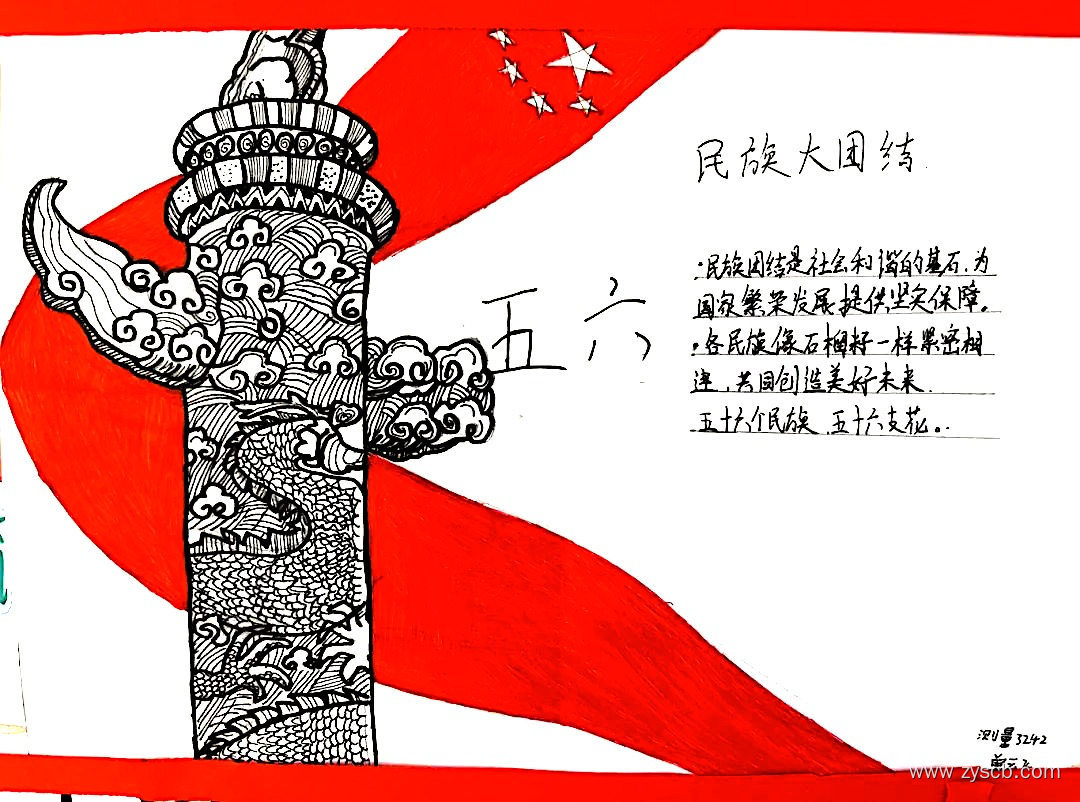 民族大团结
五六
·民族团结是社会和谐的基石,为
国家繁荣发展提供坚实保障。
·各民族像石榴籽一样紧密相
连,共同创造美好未来.
五十六个民族,五十六支花。
测量3242
www.zyscb.com